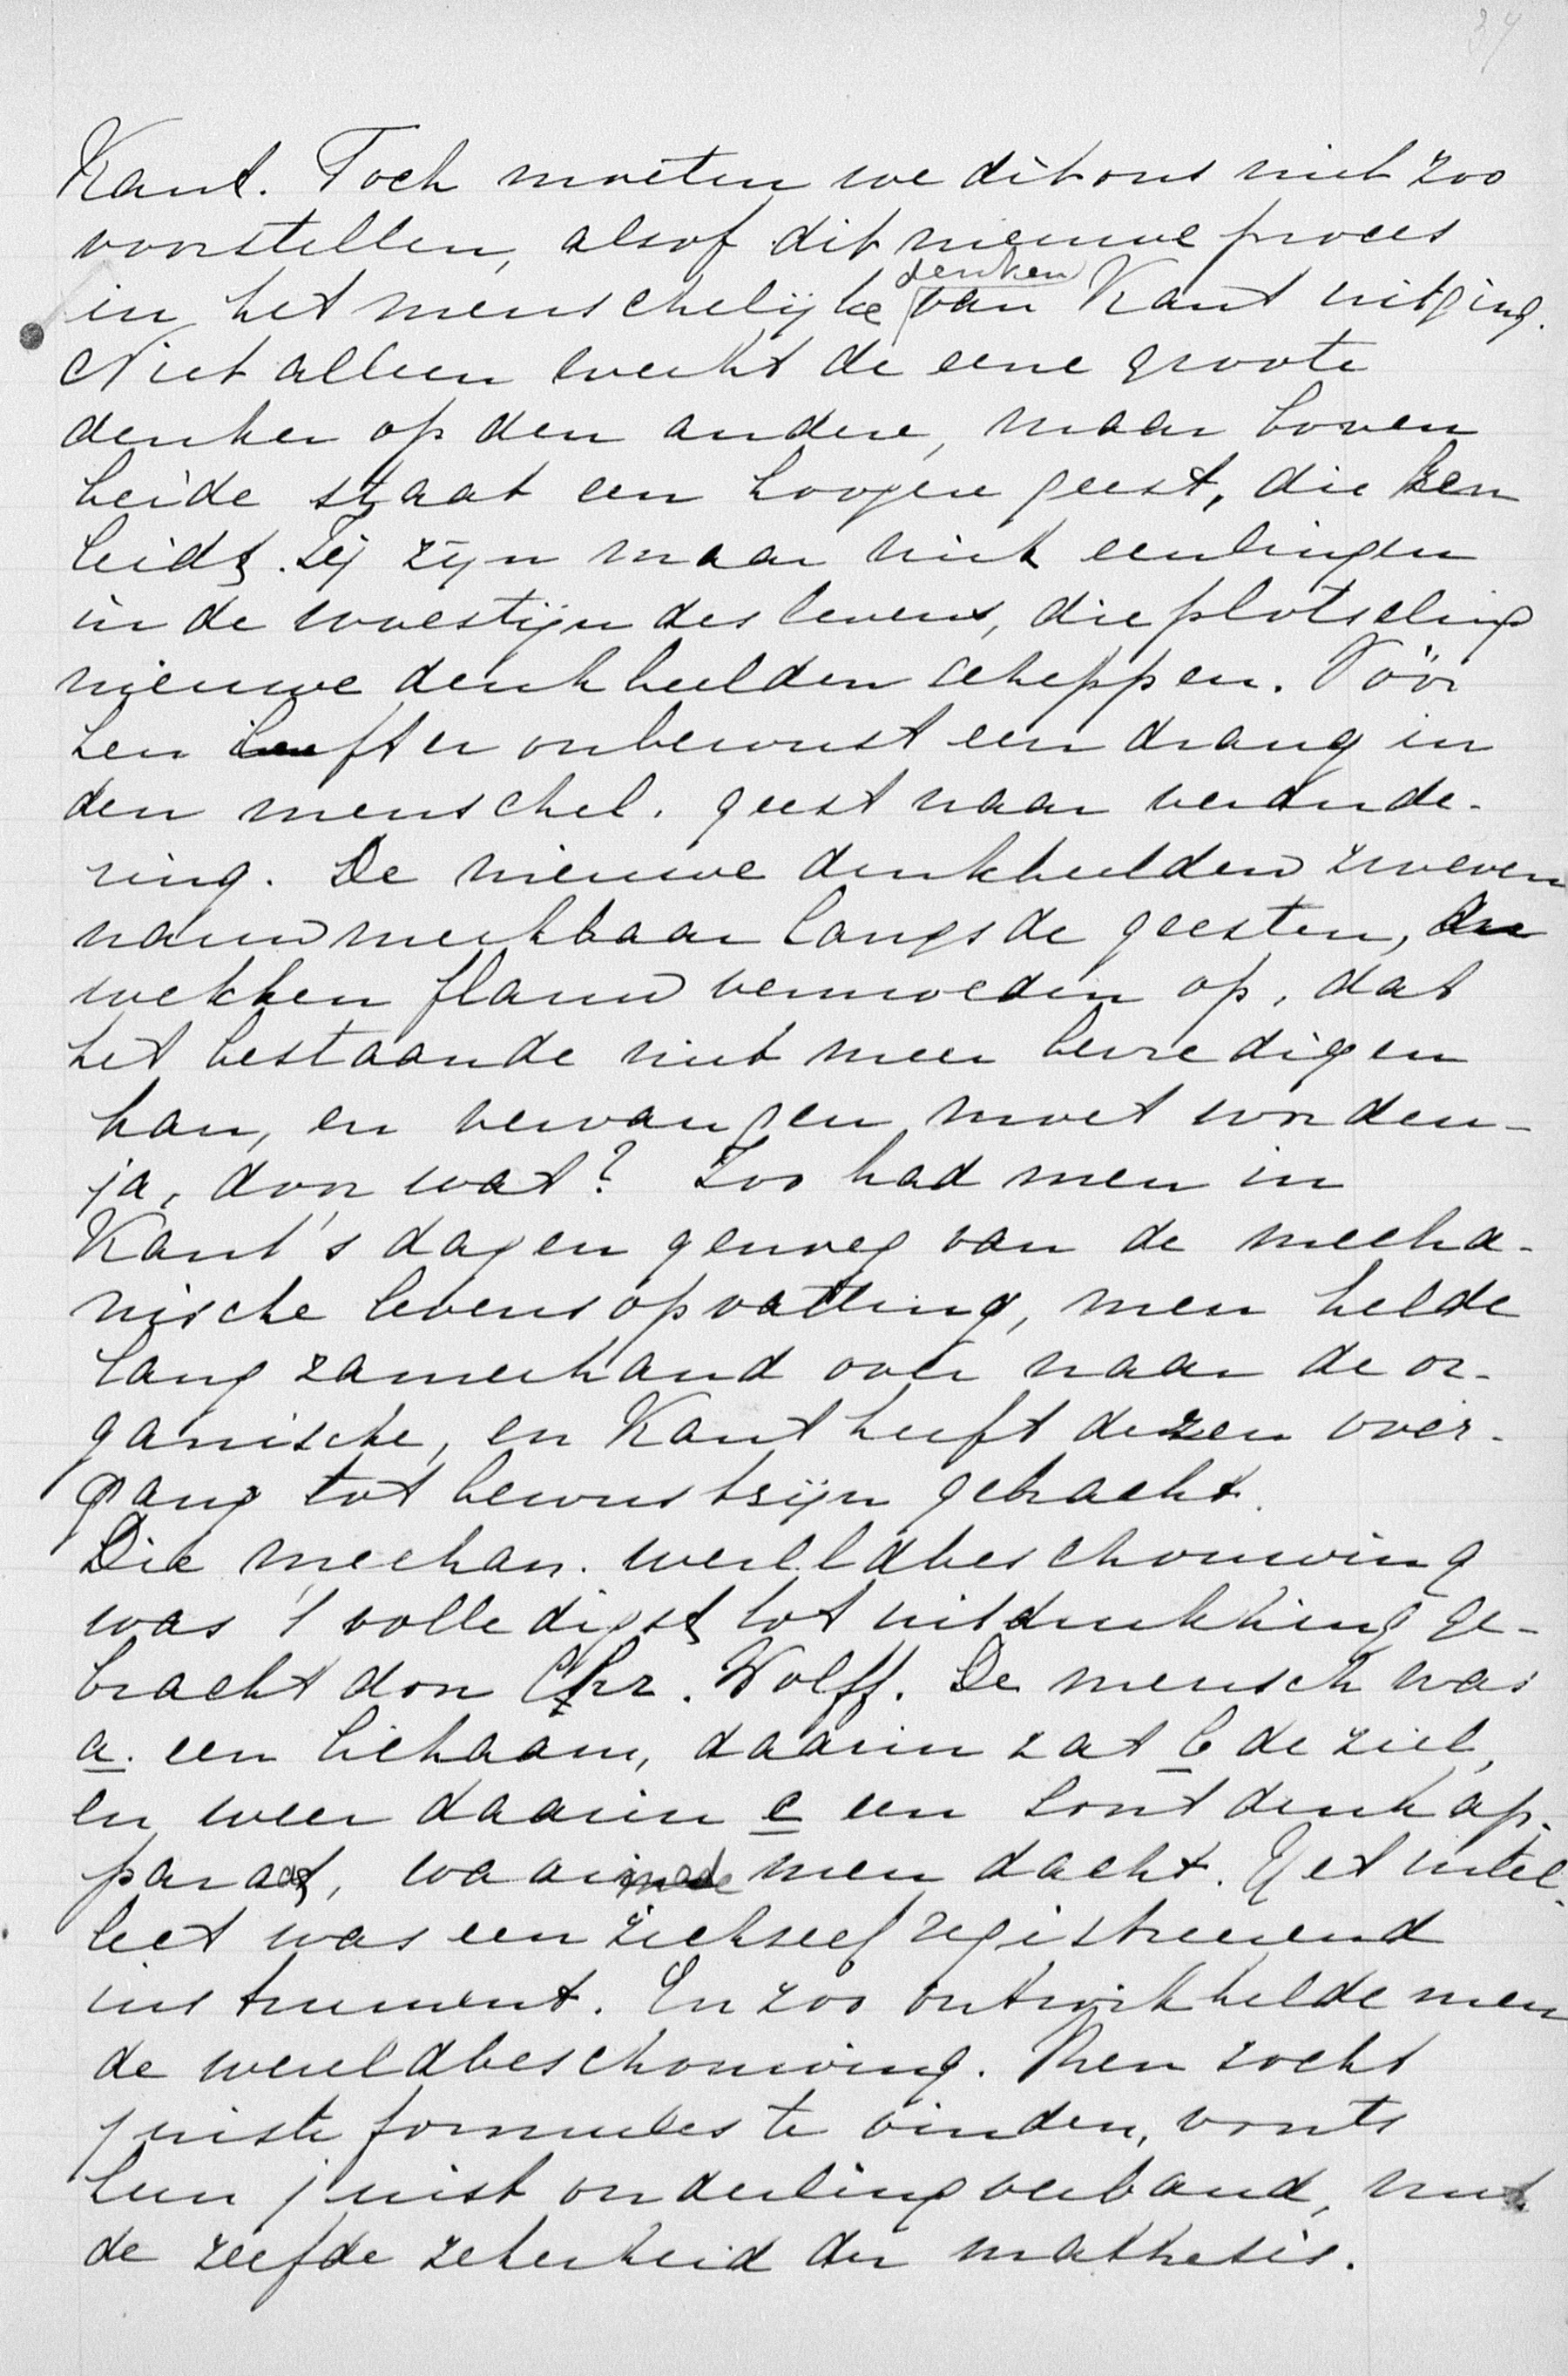 34
Kant. Toch moeten we dit ons niet zoo
voorstellen, alsof dit nieuwe proces
denken
in het menschelijke van Kant uitging.
Niet alleen werkt de eene groote
denker op den andere, maar boven
beide staat een hoogere geest, die hen
leidt. Zij zijn maar niet eenlingen
in de woestijn des levens, die plotseling
nieuwe denkbeelden scheppen. Vóór
hen leeft er onbewust een drang in
den menschel. geest naar verande-
ring. De nieuwe denkbeelden zweven
nauw merkbaar langs de geesten,
wekken flauw vermoeden op, dat
het bestaande niet meer bevredigen
kan, en vervangen moet worden-
ja, door wat? Zoo had men in
Kant's dagen genoeg van de mecha-
nische levensopvatting, men helde
langzamerhand over naar de or-
ganische, en Kant heeft dezen over-
gang tot bewustzijn gebracht.
Die mechan. wereldbeschouwing
was 't volledigst tot uitdrukking ge-
bracht door Chr. Wolff. De mensch was
a. een lichaam, daarin zat b de ziel,
en weer daarin c een soort denkap-
paraat, waarmede men dacht. Het intel-
lect was een zichzelf registreerend
instrument. En zoo ontwikkelde men
de wereldbeschouwing. Men zocht
juiste formules te vinden, voorts
hun juist onderling verband, met
de zelfde zekerheid der mathesis.